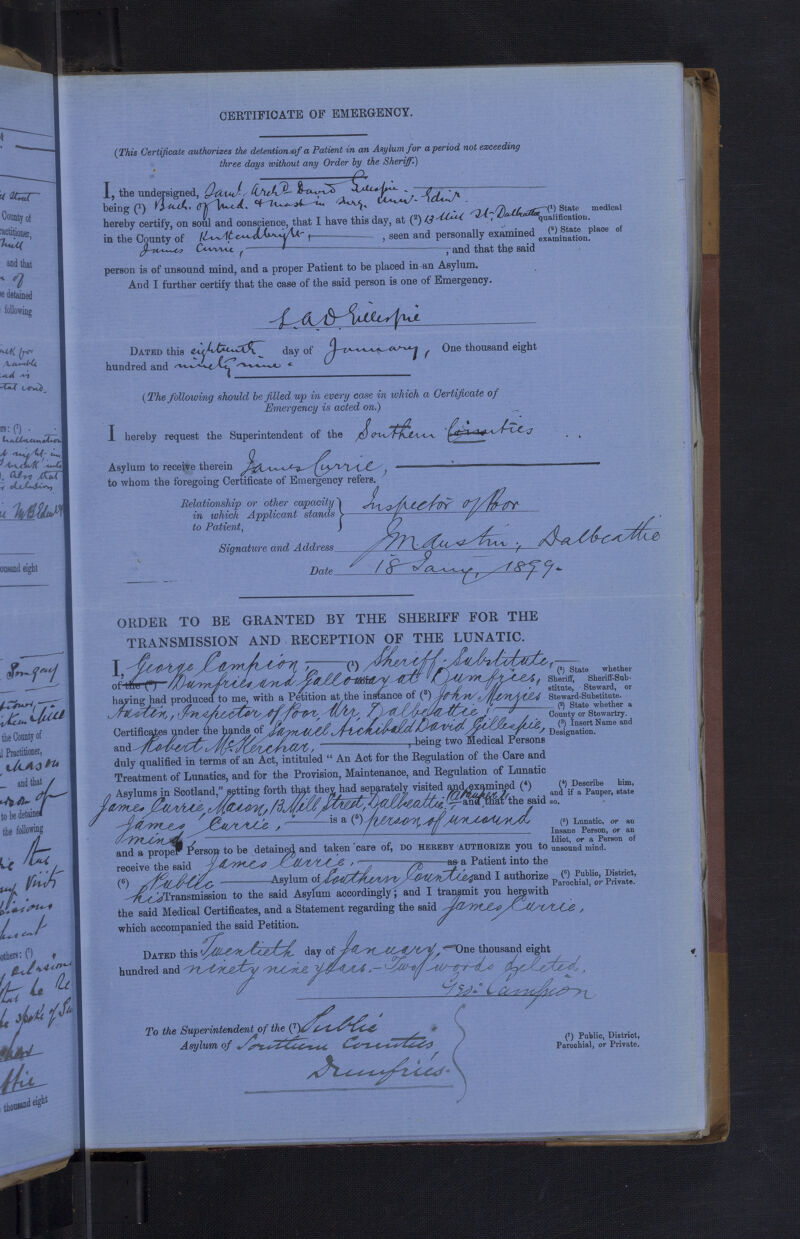 CERTIFICATE OF EMERGENCY.
(This Certificate authorizes the detention of a Patient in an Asylum for a period not exceeding
three days without any Order by the Sheriff.)
I, the undersigned, Saml. Archd. David Gillespie.
being (¹) Bach. of Med. & Mast. in Surg. Univ. Edinr.
hereby certify, on soul and conscience, that I have this day, at (²) 13 Mill St, Dalbeattie
in the County of Kirkcudbright, seen and personally examined
James Currie, and that the said
person is of unsound mind, and a proper Patient to be placed in an Asylum.
And I further certify that the case of the said person is one of Emergency.
(¹) State medical
qualification.
(²) State place of
examination.
S.A.D. Gillespie
DATED this eighteenth day of January, One thousand eight
hundred and ninety nine.
(The following should be filled up in every case in which a Certificate of
Emergency is acted on.)
I hereby request the Superintendent of the Southern Counties
Asylum to receive therein James Currie,
to whom the foregoing Certificate of Emergency refers.
Relationship or other capacity
in which Applicant stands
to Patient,
Inspector of Poor
Signature and Address JM Austin, Dalbeattie
Date 18 Jany. 1899.
ORDER TO BE GRANTED BY THE SHERIFF FOR THE
TRANSMISSION AND RECEPTION OF THE LUNATIC.
I, George Campion, (¹) Sheriff-Substitute,
of the (²) Dumfries and Galloway at Dumfries,
having had produced to me, with a Petition at the instance of (³) John Menzies
Austin, Inspector of Poor, Urr, Dalbeattie
Certificates under the hands of Samuel Archibald David Gillespie,
and Robert McKerchar, being two Medical Persons
duly qualified in terms of an Act, intituled "An Act for the Regulation of the Care and
Treatment of Lunatics, and for the Provision, Maintenance, and Regulation of Lunatic
Asylums in Scotland," setting forth that they had separately visited and examined (⁴)
James Currie, Mason, 13 Mill Street, Dalbeattie, a Pauper, and that the said
James Currie, is a (⁵) person of unsound
mind
and a proper Person to be detained and taken care of, DO HEREBY AUTHORIZE you to
receive the said James Currie, as a Patient into the
(⁶) Public Asylum of Southern Counties and I authorize
his Transmission to the said Asylum accordingly; and I transmit you herewith
the said Medical Certificates, and a Statement regarding the said James Currie,
which accompanied the said Petition.
(¹) State whether
Sheriff, Sheriff-Sub-
stitute, Steward, or
Steward-Substitute.
(²) State whether a
County or Stewartry.
(³) Insert Name and
Designation.
(⁴) Describe him,
and if a Pauper, state
so.
(⁵) Lunatic, or an
Insane Person, or an
Idiot, or a Person of
unsound mind.
(⁶) Public, District,
Parochial, or Private.
DATED this Twentieth day of January, One thousand eight
hundred and ninety nine years. - Two words deleted.
Geo: Campion
To the Superintendent of the (⁷) Public
Asylum of Southern Counties,
Dumfries.
(⁷) Public, District,
Parochial, or Private.
County of
and that
be detained
following
the County of
and that
to be detained
the following
others: (¹)
thousand eight